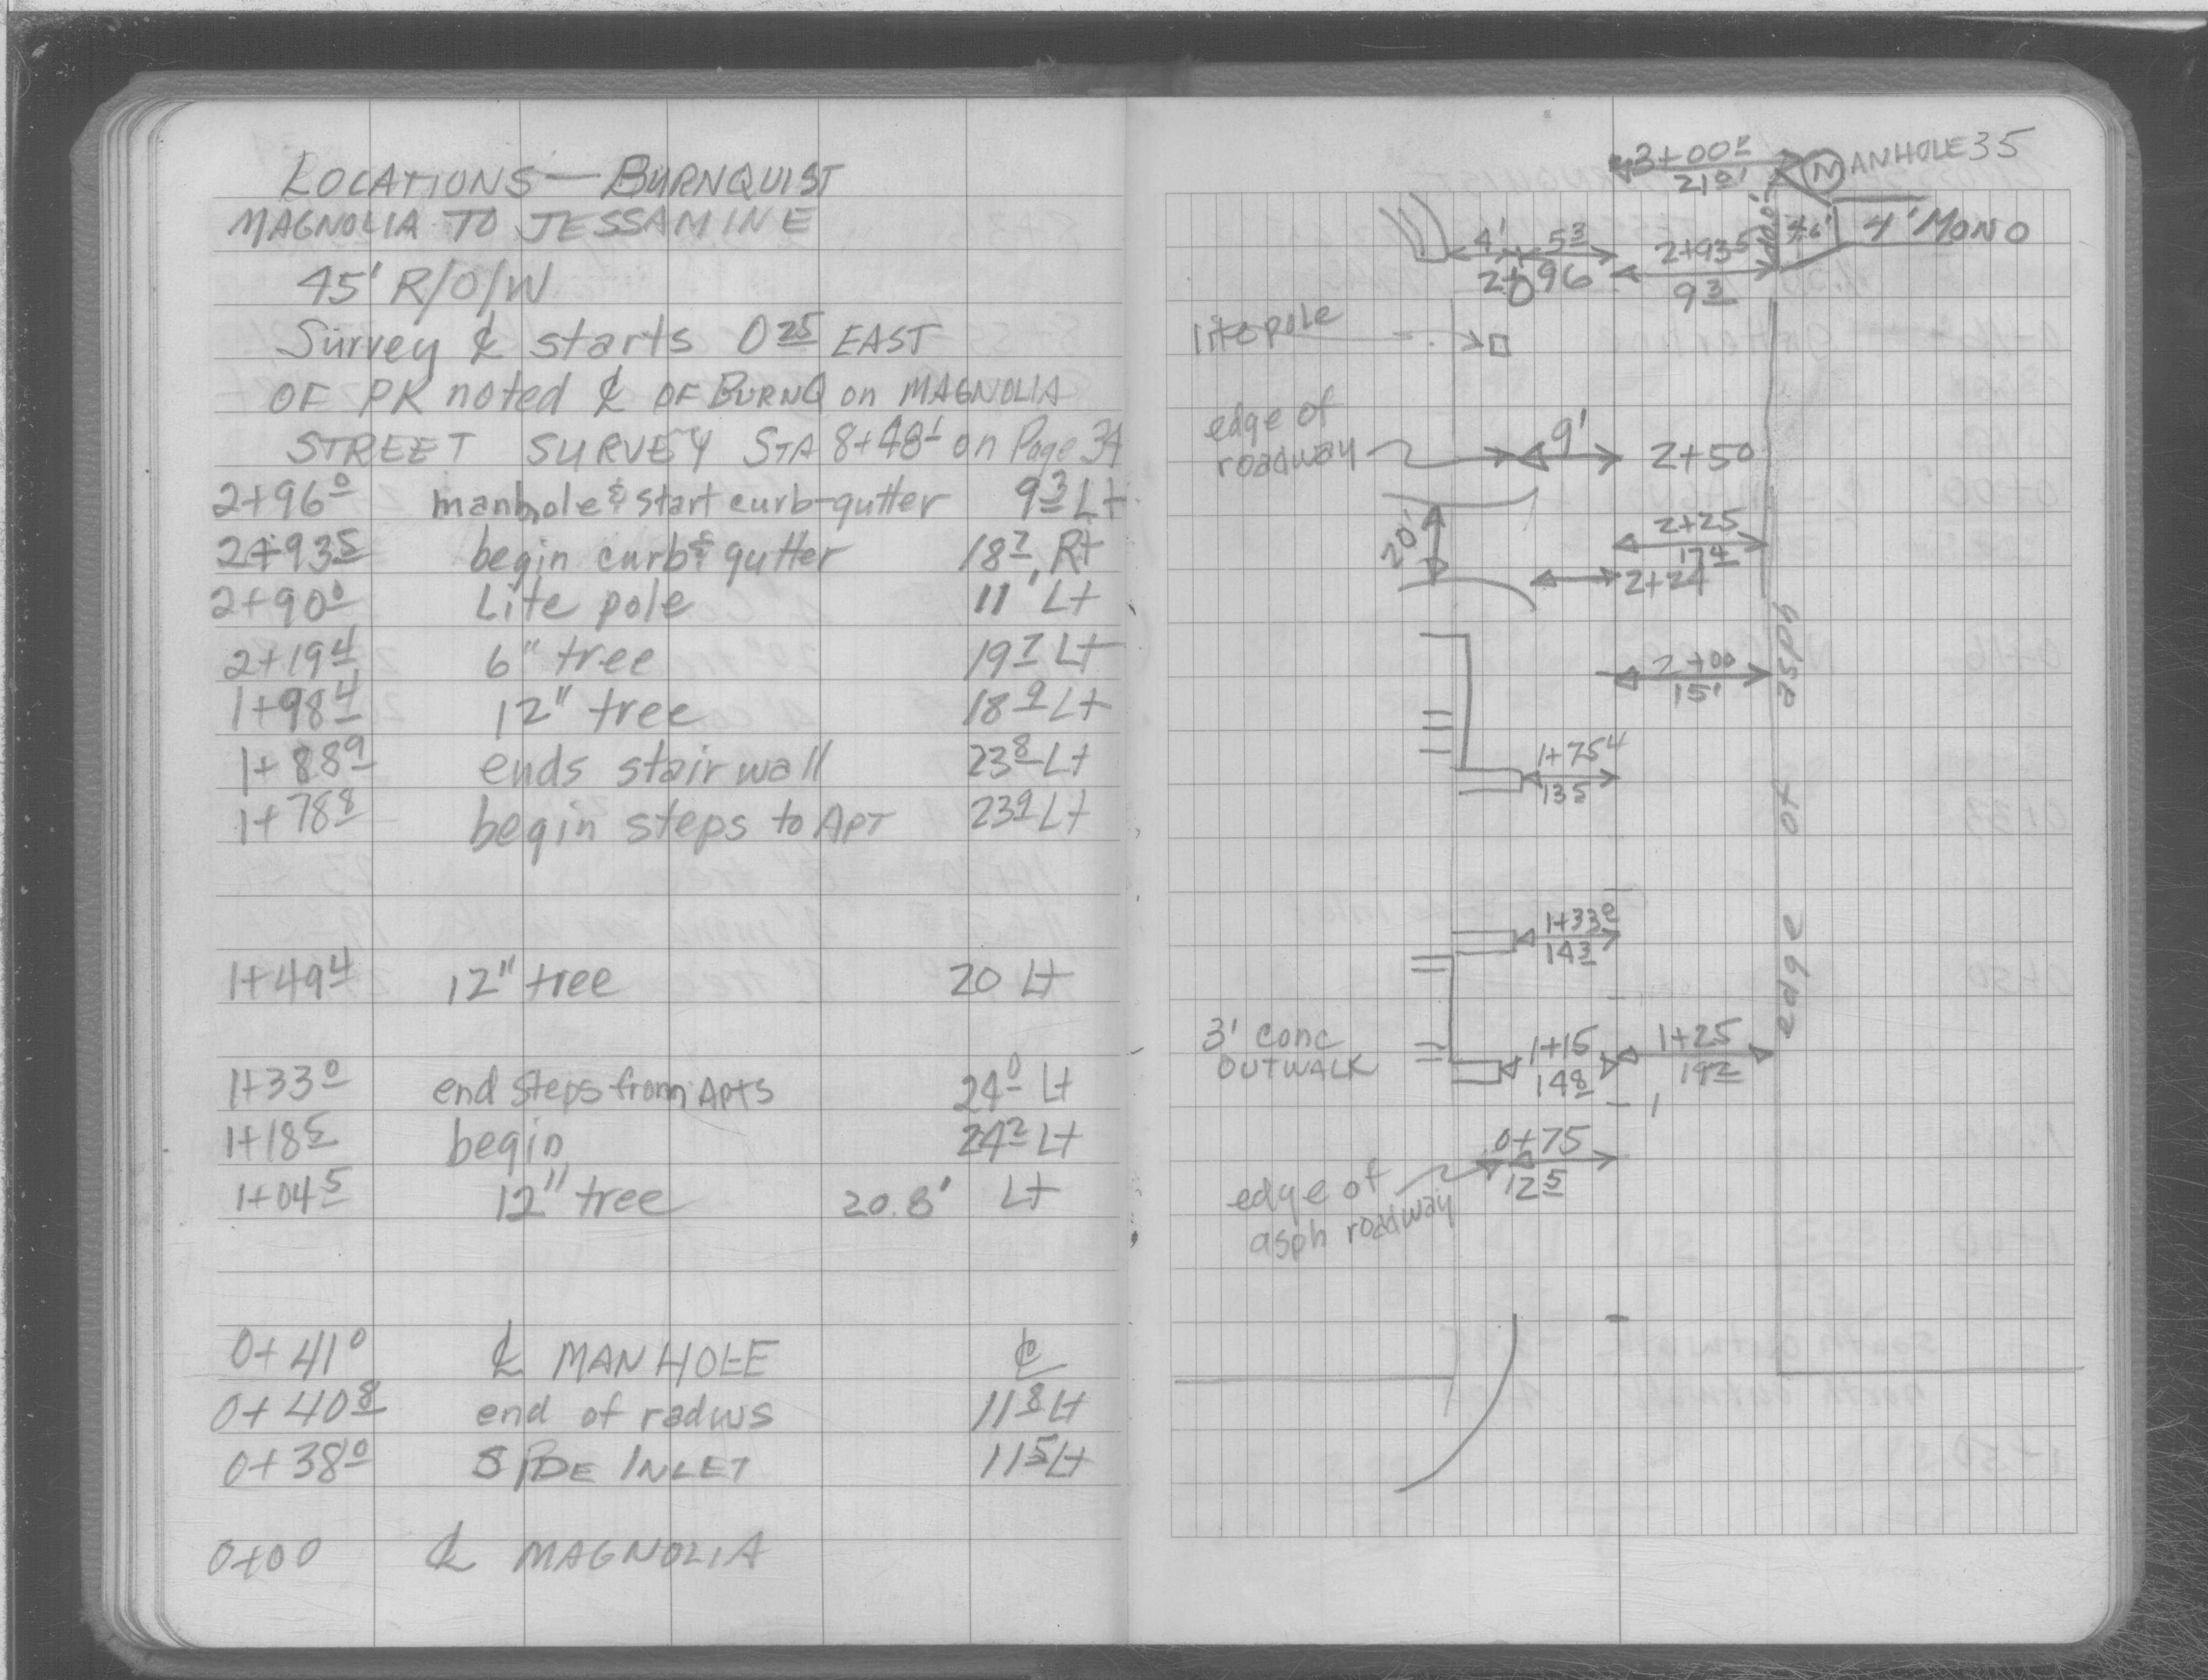 LOCATIONS — BURNQUIST
MAGNOLIA TO JESSAMINE
45' R/O/W
Survey ℄ starts 0 25 EAST
OF PK noted ℄ OF BURNQ on MAGNOLIA
STREET SURVEY STA 8+48 1 on Page 34
2+96 0 manhole & start curb-gutter 9 3 Lt
2+93 5 begin curb & gutter 18 7 Rt
2+90 0 Lite pole 11' Lt
2+19 4 6" tree 19 7 Lt
1+98 4 12" tree 18 9 Lt
1+88 9 ends stair wall 23 8 Lt
1+78 8 begin steps to APT 23 9 Lt
1+49 4 12" tree 20 Lt
1+33 0 end steps from APTS 24 0 Lt
1+18 5 begin 24 2 Lt
1+04 5 12" tree 20.8' Lt
0+41 0 ℄ MANHOLE ℄
0+40 8 end of radius 11 8 Lt
0+38 0 SIDE INLET 11 5 Lt
0+00 ℄ MAGNOLIA
3+00 MANHOLE 35
21 0'
4' 5 3 2+93 5 4' MONO
2+96 9 3
lite pole
edge of
roadway 9' 2+50
20' 2+25
17 4
2+24
2+00
15'
1+75 4
13 5
edge of asph
1+33 0
14 3
3' conc
OUTWALK
1+15 1+25
14 8 19 2
0+75
12 5
edge of
asph roadway